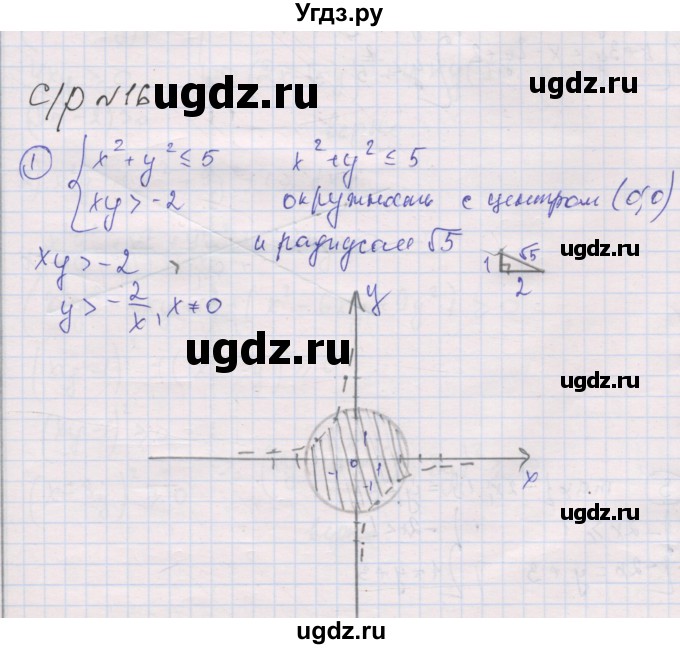 Угдз.ру
с/р №16
ugdz.ru
ugdz.ru
① { x² + y² ≤ 5
xy > -2
x² + y² ≤ 5
окружность с центром (0;0)
и радиусом √5
ugdz.ru
1 √5
2
xy > -2
y > -2/x, x ≠ 0
y
ugdz.ru
ugdz.ru
1
-1 0 1
-1
x
ugdz.ru
ugdz.ru